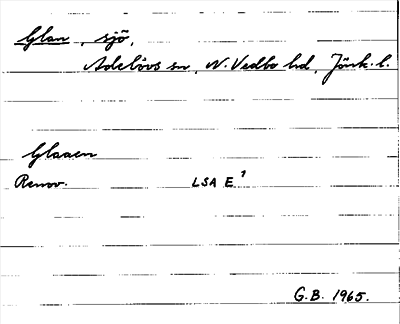 Glan, sjö,
Adelövs sn, N. Vedbo hd, Jönk. l.
Glaaen
Renov. LSA E 1
G.B. 1965.